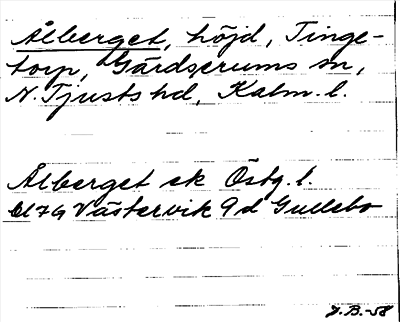 Ålberget, höjd, Tinge-
torp, Gärdserums sn,
N. Tjusts hd, Kalm. l.
Ålberget ek Östg. l.
bl 74 Västervik 9d Gullebo
J.B.-58